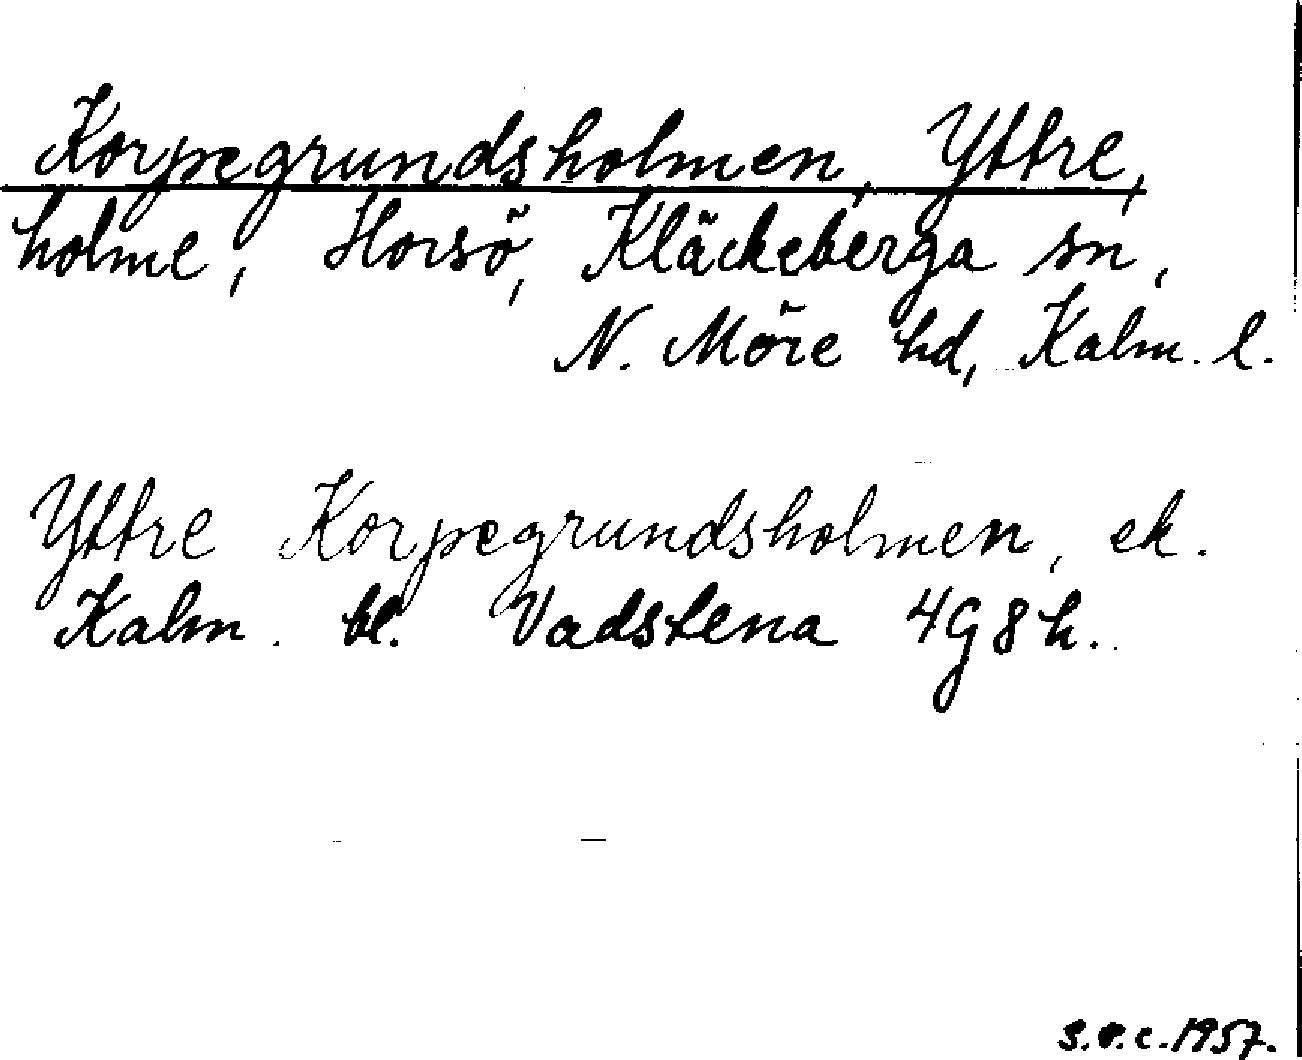 Korpegrundsholmen, Yttre,
holme, Horsö, Kläckeberga sn,
N. Möre hd, Kalm. l.
Yttre Korpegrundsholmen, ek.
Kalm. bl. Vadstena 4G8h.
S.O.C. 1957.